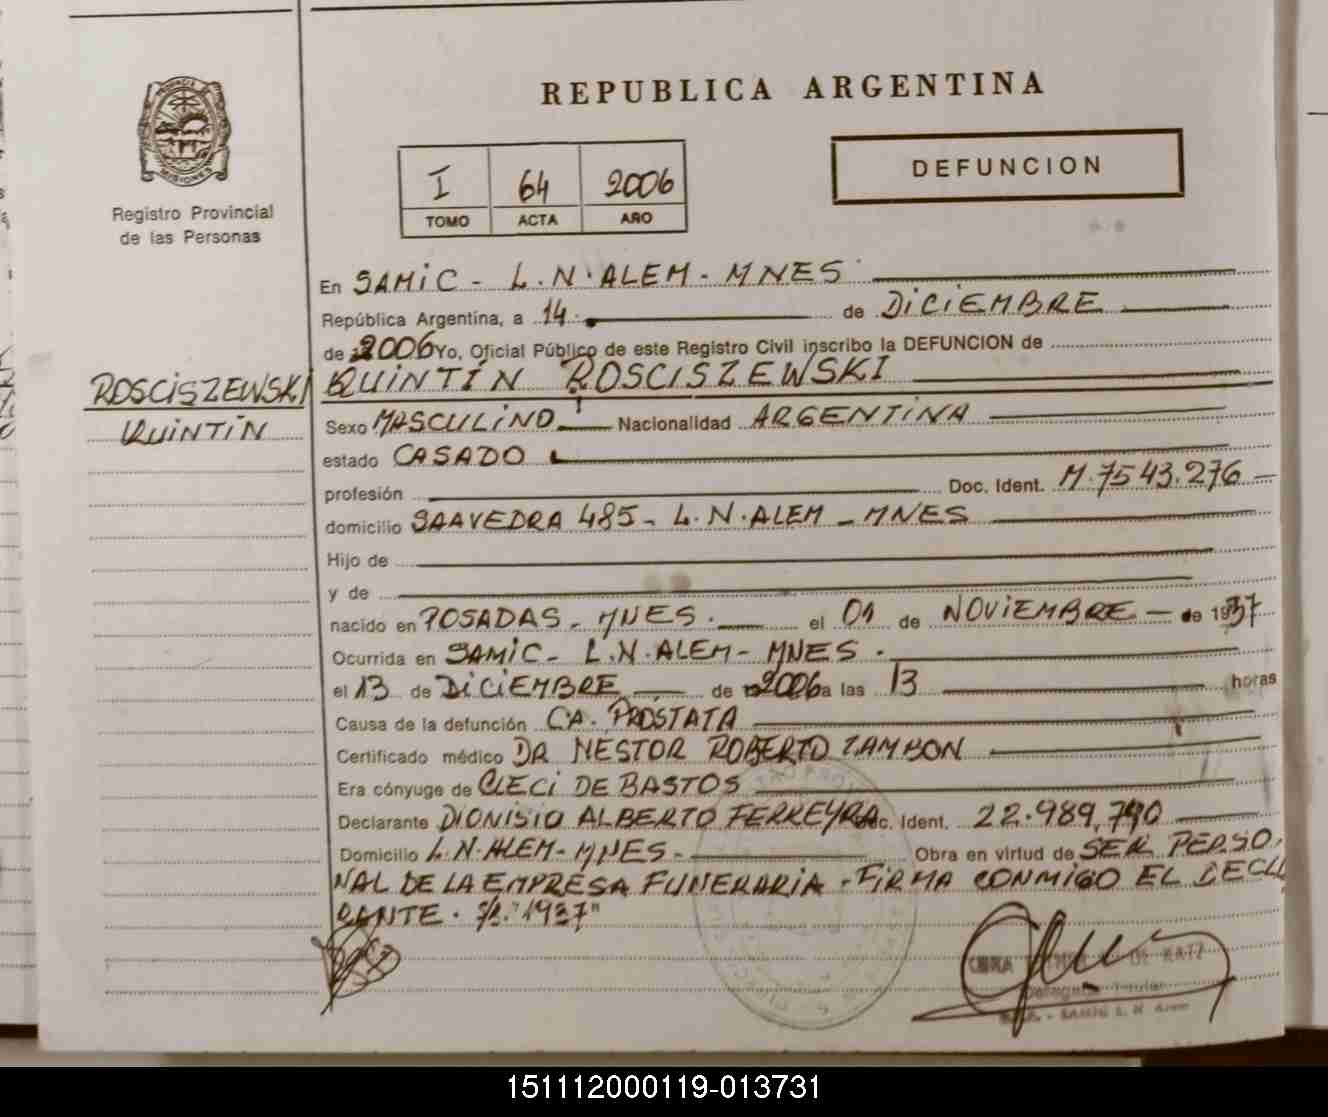 REPUBLICA ARGENTINA
PROVINCIA DE
MISIONES
Registro Provincial
de las Personas
I 64 2006
TOMO ACTA AÑO
DEFUNCION
En SAMIC - L.N. ALEM - MNES
República Argentina, a 14 de DICIEMBRE
de 2006 Yo, Oficial Público de este Registro Civil inscribo la DEFUNCION de
ROSCISZEWSKI
QUINTIN
QUINTIN ROSCISZEWSKI
Sexo MASCULINO Nacionalidad ARGENTINA
estado CASADO
profesión Doc. Ident. M. 7543.276 -
domicilio SAAVEDRA 485 - L.N. ALEM - MNES
Hijo de
y de
nacido en POSADAS - MNES. el 01 de NOVIEMBRE - de 1937
Ocurrida en SAMIC - L.N. ALEM - MNES.
el 13 de DICIEMBRE de 2006 a las 13 horas
Causa de la defunción CA. PROSTATA
Certificado médico DR NESTOR ROBERTO ZAMBON
Era cónyuge de CLECI DE BASTOS
Declarante DIONISIO ALBERTO FERREYRA Doc. Ident. 22.989.790
Domicilio L.N. ALEM - MNES - Obra en virtud de SER PERSO
NAL DE LA EMPRESA FUNERARIA - FIRMA CONMIGO EL DECLA
RANTE. "1937"
DE KATZ
Delegada Titular
- SAMIC L. N. Alem
151112000119-013731